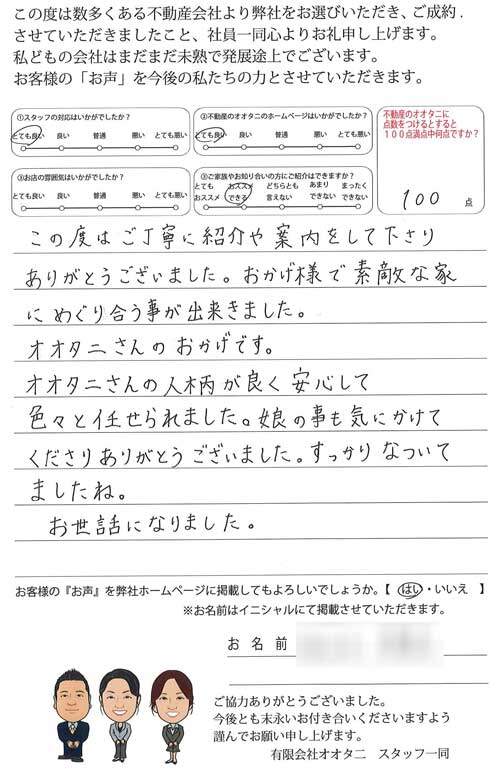 この度は数多くある不動産会社より弊社をお選びいただき、ご成約.
させていただきましたこと、社員一同心よりお礼申し上げます。
私どもの会社はまだまだ未熟で発展途上でございます。
お客様の「お声」を今後の私たちの力とさせていただきます。
①スタッフの対応はいかがでしたか?
とても良い 良い 普通 悪い とても悪い
②不動産のオオタニのホームページはいかがでしたか?
とても良い 良い 普通 悪い とても悪い
③お店の雰囲気はいかがでしたか?
とても良い 良い 普通 悪い とても悪い
⑤ご家族やお知り合いの方にご紹介はできますか?
とても おススメ どちらとも あまり まったく
おススメ できる 言えない できない できない
不動産のオオタニに
点数をつけるとすると
100点満点中何点ですか?
100 点
この度はご丁寧に紹介や案内をして下さり
ありがとうございました。おかげ様で素敵な家
にめぐり合う事が出来きました。
オオタニさんのおかげです。
オオタニさんの人柄が良く安心して
色々と任せられました。娘の事も気にかけて
くださりありがとうございました。すっかりなついて
ましたね。
お世話になりました。
お客様の『お声』を弊社ホームページに掲載してもよろしいでしょうか。【 はい・いいえ 】
※お名前はイニシャルにて掲載させていただきます。
お名前
ご協力ありがとうございました。
今後とも末永いお付き合いくださいますよう
謹んでお願い申し上げます。
有限会社オオタニ スタッフ一同